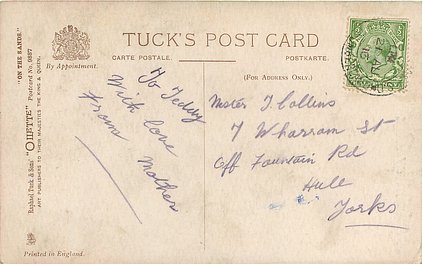 TUCK'S POST CARD
CARTE POSTALE.
POSTKARTE.
By Appointment.
(FOR ADDRESS ONLY.)
"ON THE SANDS."
Raphael Tuck & Sons' "OILETTE" Postcard No. 9887
ART PUBLISHERS TO THEIR MAJESTIES THE KING & QUEEN.
To Teddy
With love
From Mother
Master T Collins
7 Wharram St
Off Fountain Rd
Hull
Yorks
Printed in England.